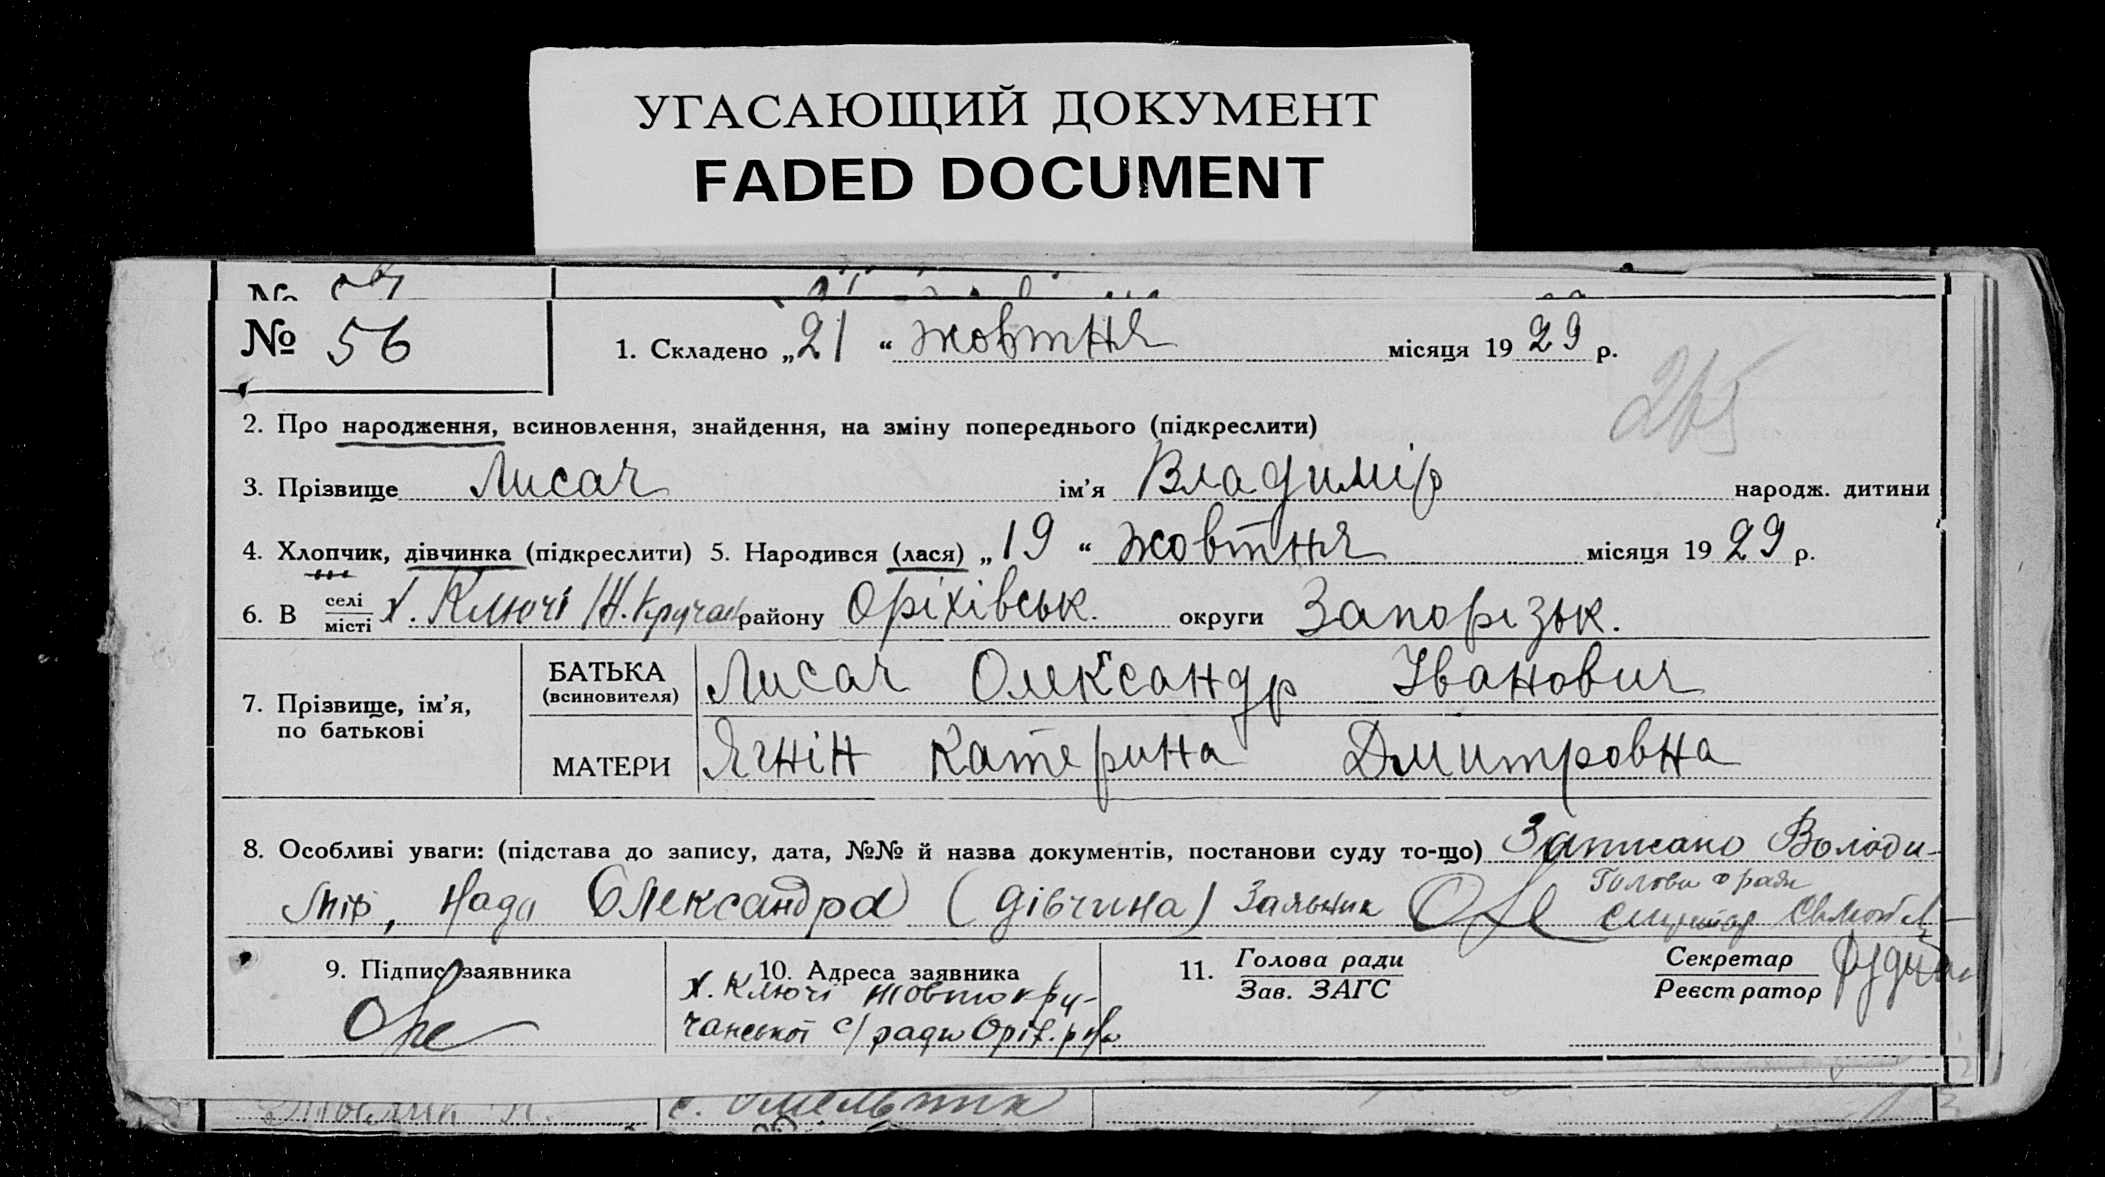 УГАСАЮЩИЙ ДОКУМЕНТ
FADED DOCUMENT
№
№ 56
1. Складено „21“ жовтня місяця 1929 р.
265
2. Про народження, всиновлення, знайдення, на зміну попереднього (підкреслити)
3. Прізвище Лисач ім'я Владимір народж. дитини
4. Хлопчик, дівчинка (підкреслити) 5. Народився (лася) „19“ жовтня місяця 1929 р.
6. В селі місті х. Ключі району Оріхівськ. округи Запорізьк.
7. Прізвище, ім'я, по батькові
БАТЬКА (всиновителя) Лисач Олександр Іванович
МАТЕРИ Ягнін Катерина Дмитровна
8. Особливі уваги: (підстава до запису, дата, №№ й назва документів, постанови суду то-що) Записано Володи-
мір, нада Олександра (дівчина) Заявник Голова с ради
9. Підпис заявника
10. Адреса заявника
х. Ключі Жовтокру-
чанської с/ ради Оріх. р-на
11. Голова ради
Зав. ЗАГС
Секретар
Реєстратор
с. Омельник